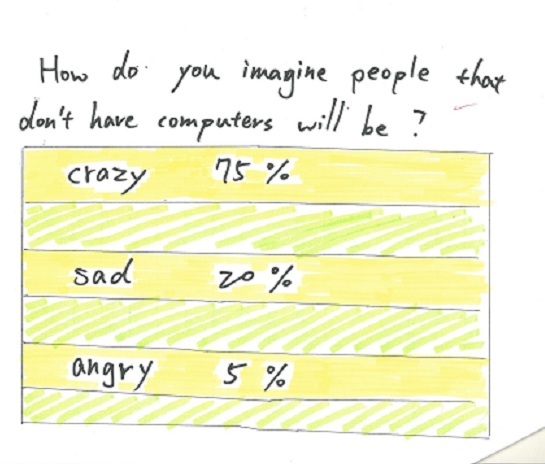 How do you imagine people that
don't have computers will be ?
crazy 75 %
sad 20 %
angry 5 %